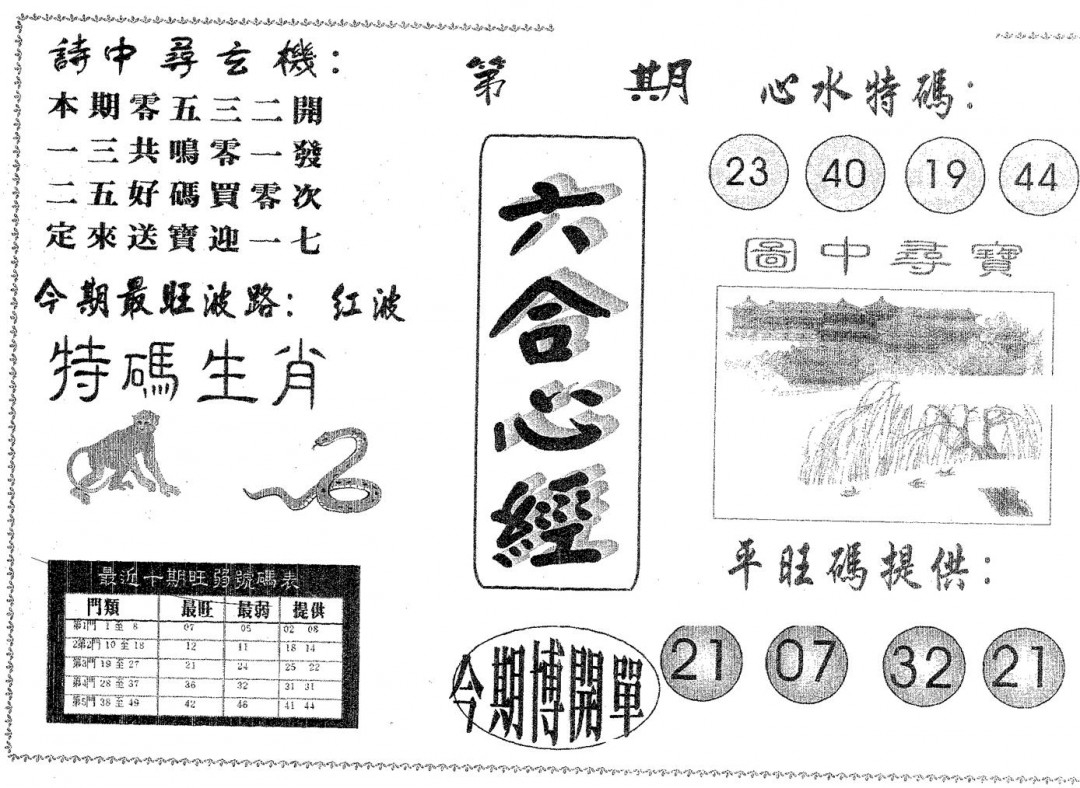 詩中尋玄機：
本期零五三二開
一三共鳴零一發
二五好碼買零次
定來送寶迎一七
今期最旺波路： 红波
特碼生肖
最近十期旺弱號碼表
門類 最旺 最弱 提供
第1門 1 至 8 07 05 02 08
2第2門 10 至 18 12 11 18 14
第3門 19 至 27 21 24 25 22
第4門 28 至 37 36 32 31 31
第5門 38 至 49 42 46 41 44
第 期
六合心經
今期博開單
心水特碼：
23 40 19 44
圖中尋寶
平旺碼提供：
21 07 32 21